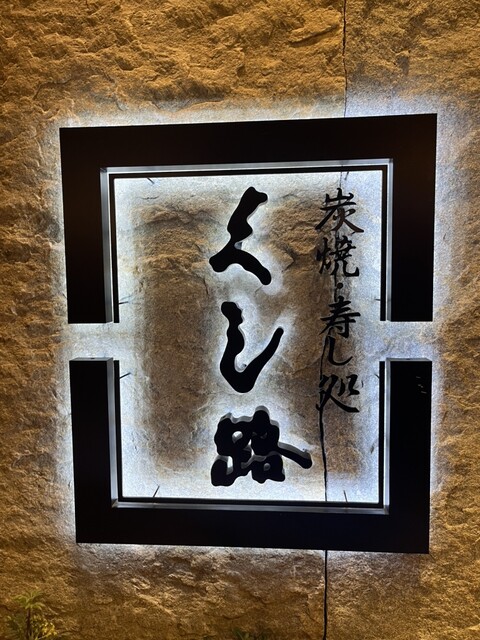 炭焼・寿し処
くし路